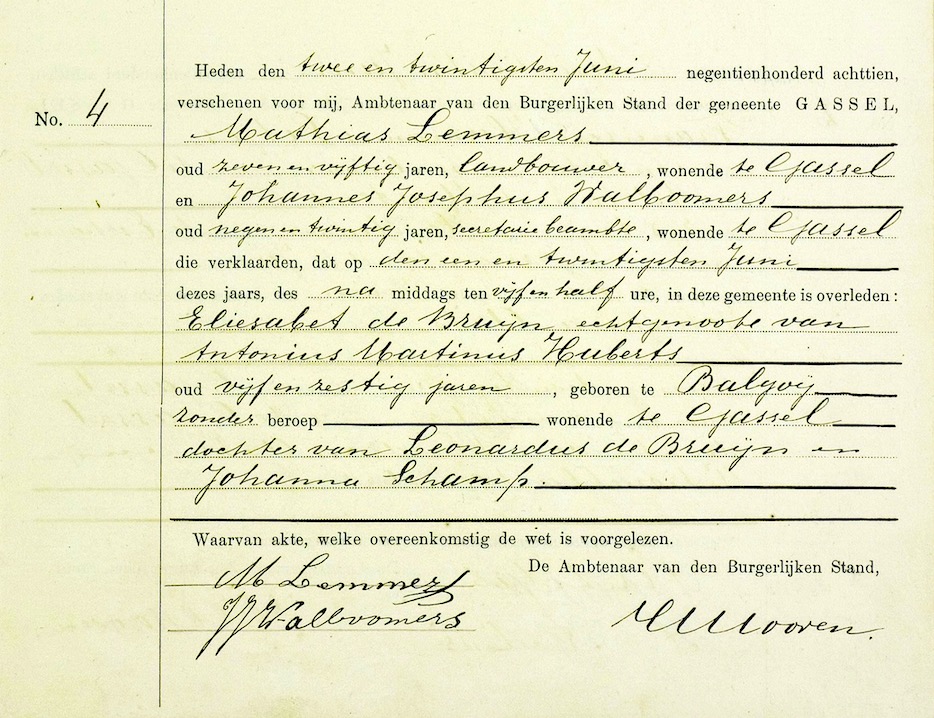 No. 4
Heden den twee en twintigsten Juni negentienhonderd achttien,
verschenen voor mij, Ambtenaar van den Burgerlijken Stand der gemeente GASSEL,
Mathias Lemmers
oud zeven en vijftig jaren, landbouwer, wonende te Gassel
en Johannes Josephus Walboomers
oud negen en twintig jaren, secretarie beambte, wonende te Gassel
die verklaarden, dat op den een en twintigsten Juni
dezes jaars, des na middags ten vijf en half ure, in deze gemeente is overleden:
Eliesabet de Bruijn, echtgenoote van
Antonius Martinus Huberts
oud vijf en zestig jaren, geboren te Balgoij
zonder beroep wonende te Gassel
dochter van Leonardus de Bruijn en
Johanna Schamp.
Waarvan akte, welke overeenkomstig de wet is voorgelezen.
De Ambtenaar van den Burgerlijken Stand,
M Lemmers
JJWalboomers